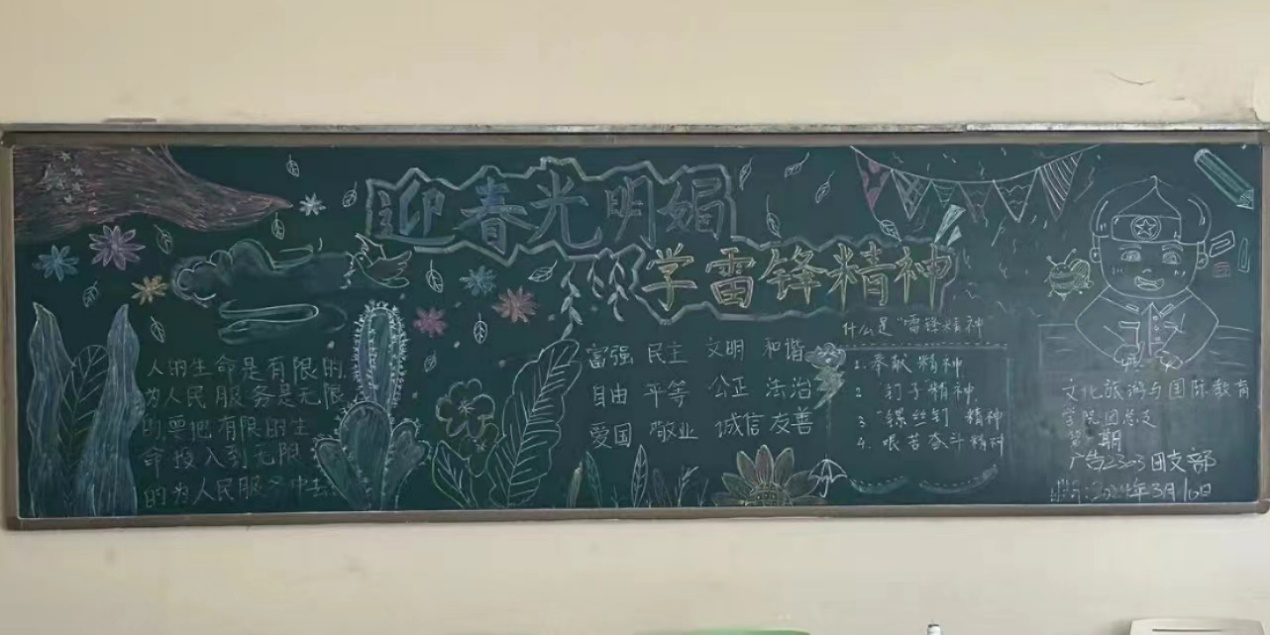 迎春光明媚
学雷锋精神
人的生命是有限的,
为人民服务是无限
的,要把有限的生
命投入到无限
的为人民服务中去。
富强 民主 文明 和谐
自由 平等 公正 法治
爱国 敬业 诚信 友善
什么是"雷锋精神"
1. 奉献精神
2. "钉子"精神
3. "螺丝钉"精神
4. 艰苦奋斗精神
文化旅游与国际教育
学院团总支
第 期
广告2303团支部
时间:2024年3月10日